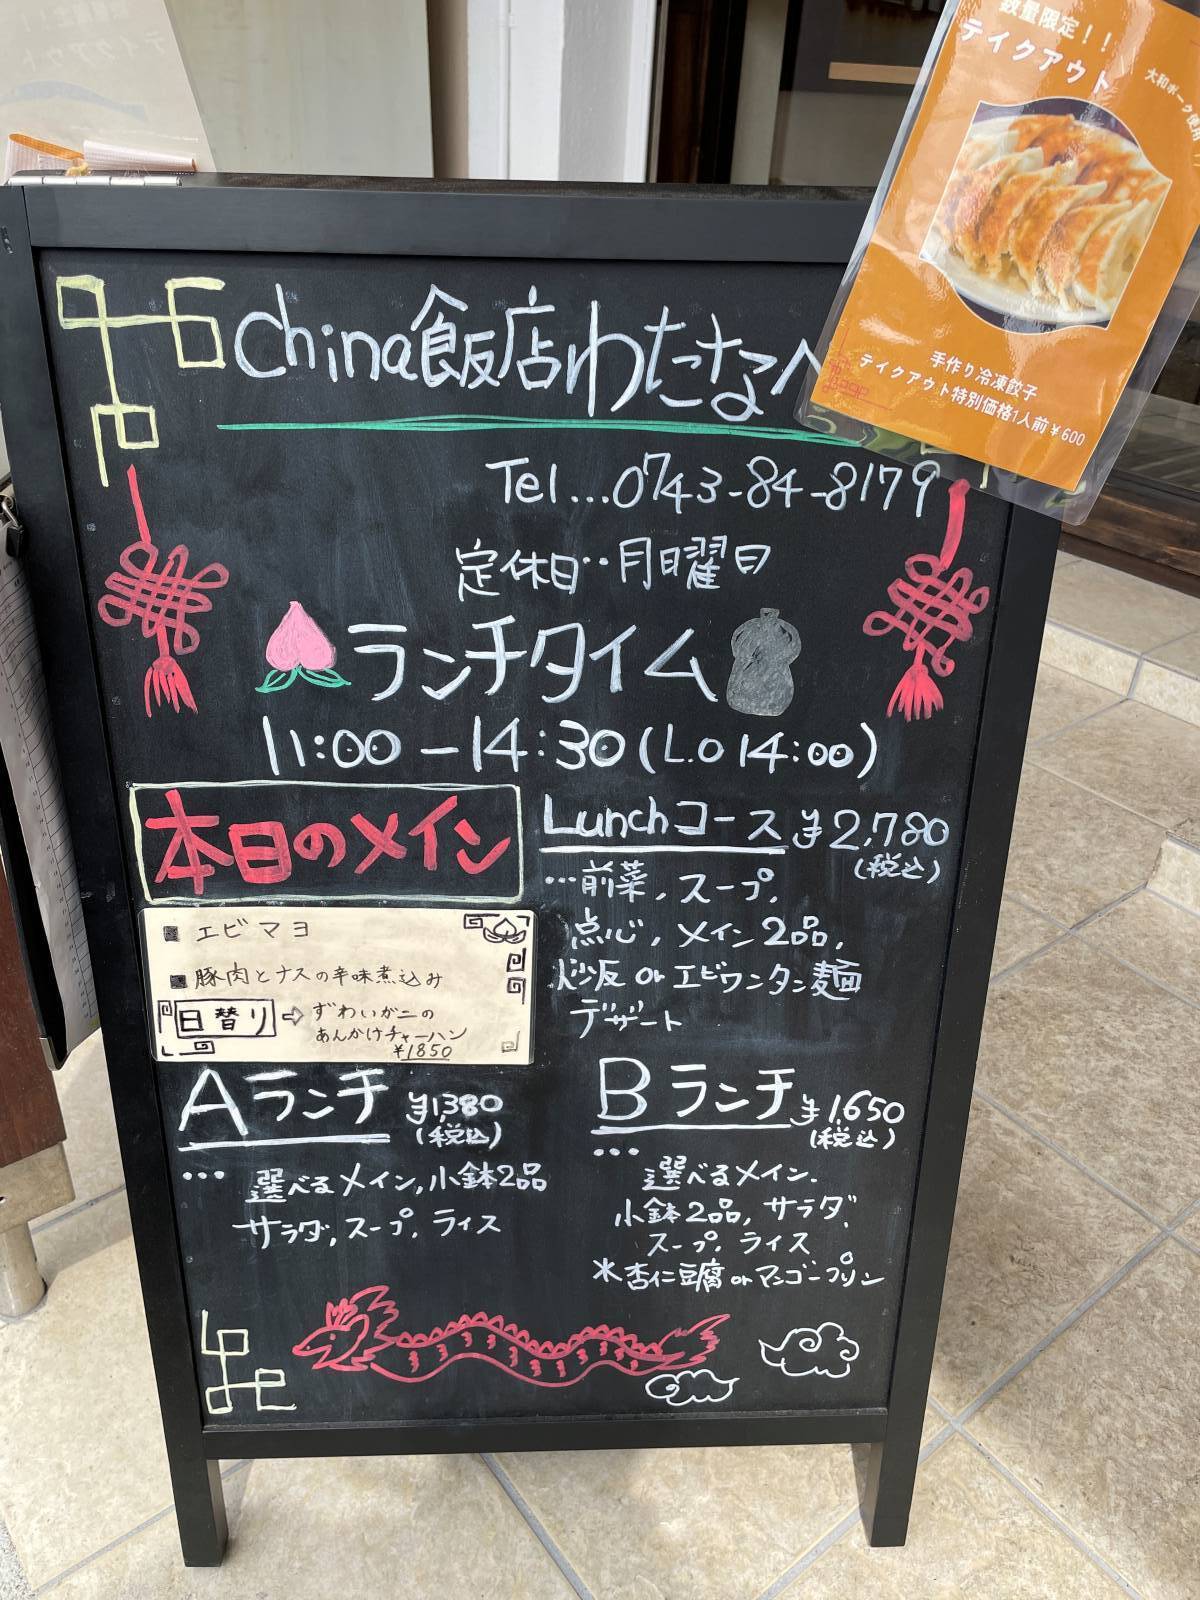 数量限定！！
テイクアウト
大和ポーク使用
手作り冷凍餃子
テイクアウト特別価格1人前￥600
China飯店わたなべ
Tel...0743-84-8179
定休日‥月曜日
ランチタイム
11:00-14:30(L.O 14:00)
本日のメイン
■ エビマヨ
■ 豚肉とナスの辛味煮込み
日替り ⇨ ずわいガニの
あんかけチャーハン
¥1850
Lunchコース ¥2,780
(税込)
…前菜,スープ,
点心,メイン2品,
炒飯 or エビワンタン麺
デザート
Aランチ ¥1,380
(税込)
… 選べるメイン,小鉢2品
サラダ,スープ,ライス
Bランチ ¥1,650
(税込)
… 選べるメイン.
小鉢2品,サラダ,
スープ,ライス
*杏仁豆腐 or マンゴープリン